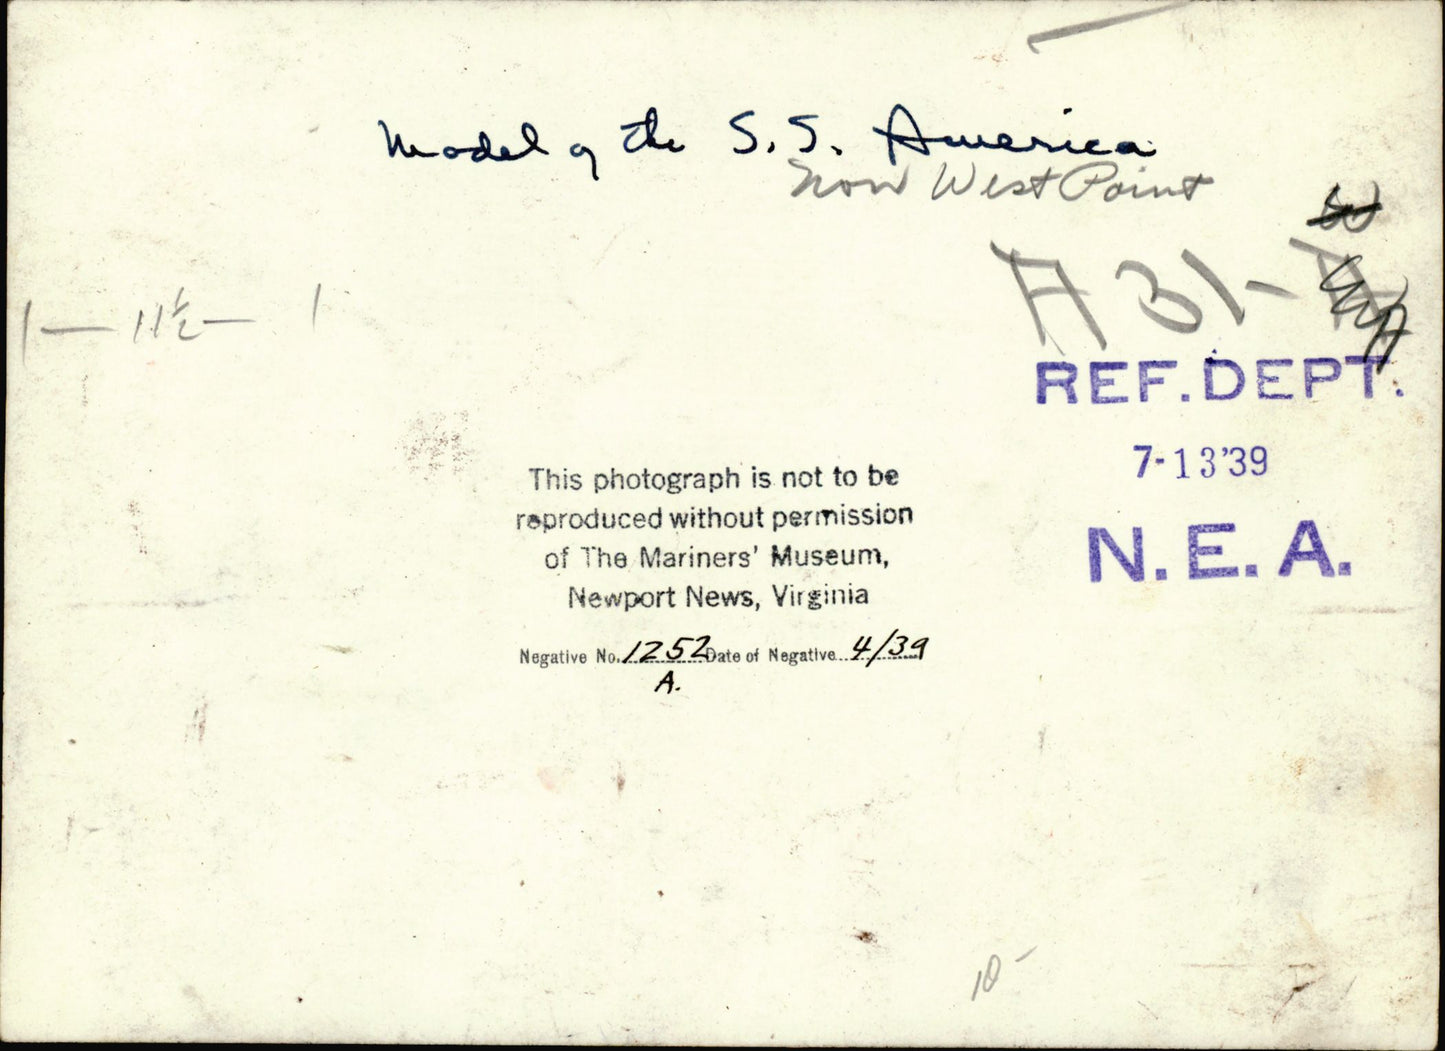 Model of the S.S. America
now West Point
A 31-
1 — 11½ — 1
REF. DEPT.
7-13'39
N.E.A.
This photograph is not to be
reproduced without permission
of The Mariners' Museum,
Newport News, Virginia
Negative No. 1252 Date of Negative 4/39
A.
10-